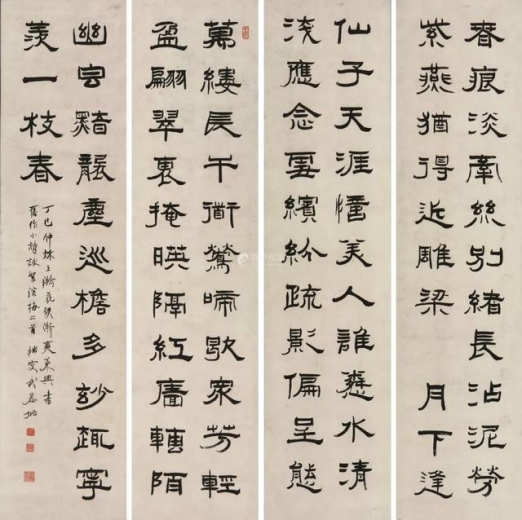 春痕淡牽絲別緒長沾泥勞
紫燕猶得近雕梁 月下逢
仙子天涯憶美人誰憑水清
淺應念雲繽紛疏影偏呈態
萬縷長千街鶯啼歇眾芳輕
盈翩翠裏掩映隔紅牆轉陌
幽宮黯龍塵巡檐多妙趣寧
羨一枝春
丁巳仲秋上瀚
舊作小詩詠二首